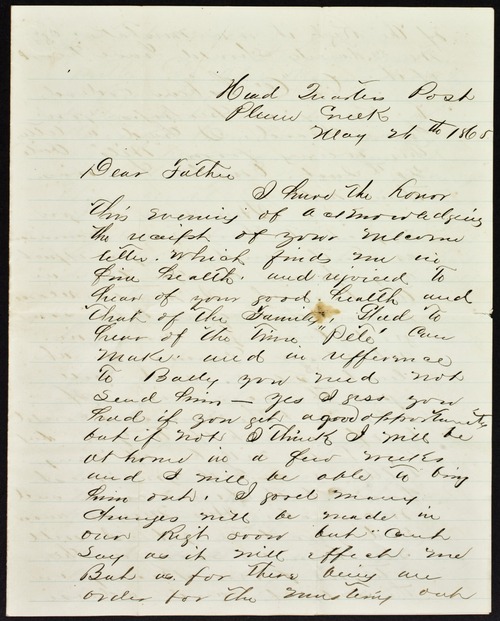 Head Quarters Post
Plum Creek
May 26th 1865
Dear Father
I have the honor
this evening of acknowledging
the receipt of your welcome
letter. Which finds me in
fine health. and rejoiced to
hear of your good health and
that of the Family, Glad to
hear of the time "Pete" can
make. and in refference
to Bally you need not
send him — yes I gess you
had if you get a good opportunity
but if not I think I will be
at home in a few weeks
and I will be able to bring
him out. I good many
changes will be made in
our Regt soon but cant
say as it will effect me
But as for there being an
order for the mustering out